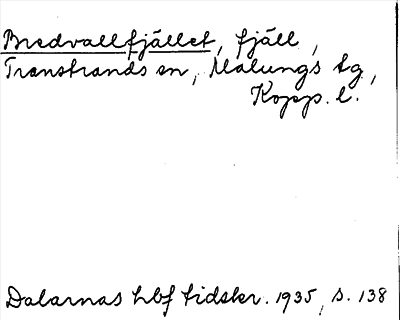 Bredvallfjället, fjäll,
Transtrands sn, Malungs tg,
Kopp. l.
Dalarnas hbf tidskr. 1935, s. 138